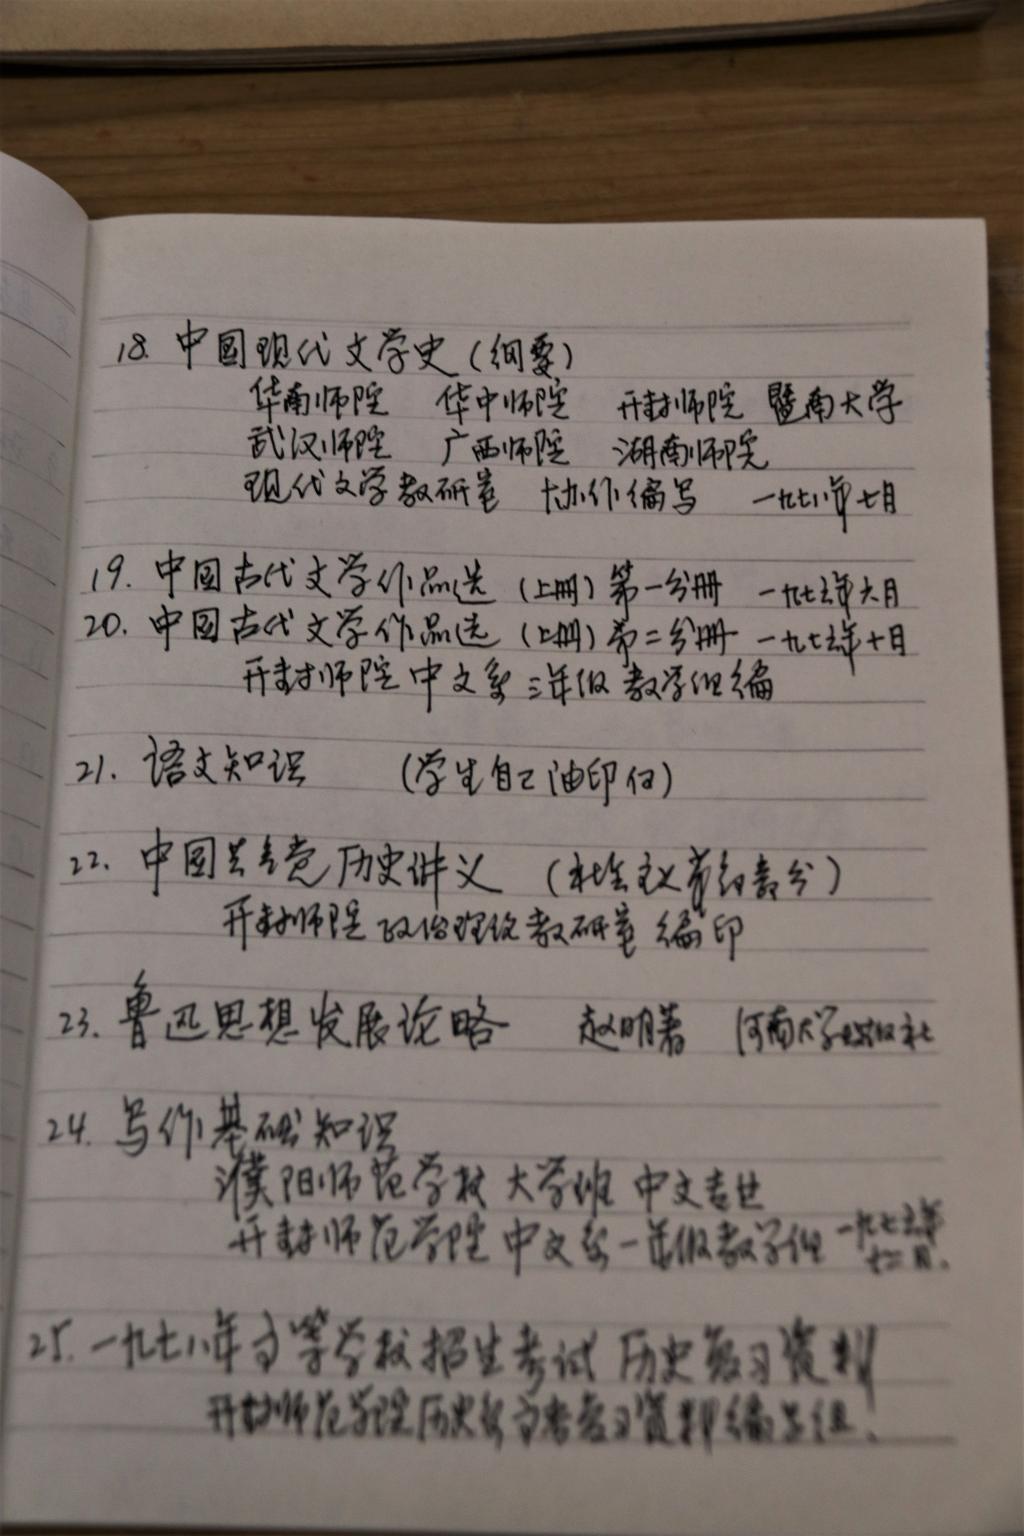 18. 中国现代文学史(纲要)
华南师院 华中师院 开封师院 暨南大学
武汉师院 广西师院 湖南师院
现代文学教研室 协作编写 一九七八年七月
19. 中国古代文学作品选(上册)第一分册 一九七五年六月
20. 中国古代文学作品选(上册)第二分册 一九七五年十月
开封师院中文系二年级教学组编
21. 语文知识 (学生自己油印的)
22. 中国共产党历史讲义 (社会主义革命部分)
开封师院政治理论教研室编印
23. 鲁迅思想发展论略 赵明著 河南大学出版社
24. 写作基础知识
濮阳师范学校 大学班 中文专业
开封师范学院中文系一年级教学组 一九七五年
十二月.
25. 一九七八年高等学校招生考试 历史复习资料
开封师范学院历史系高考复习资料编写组.